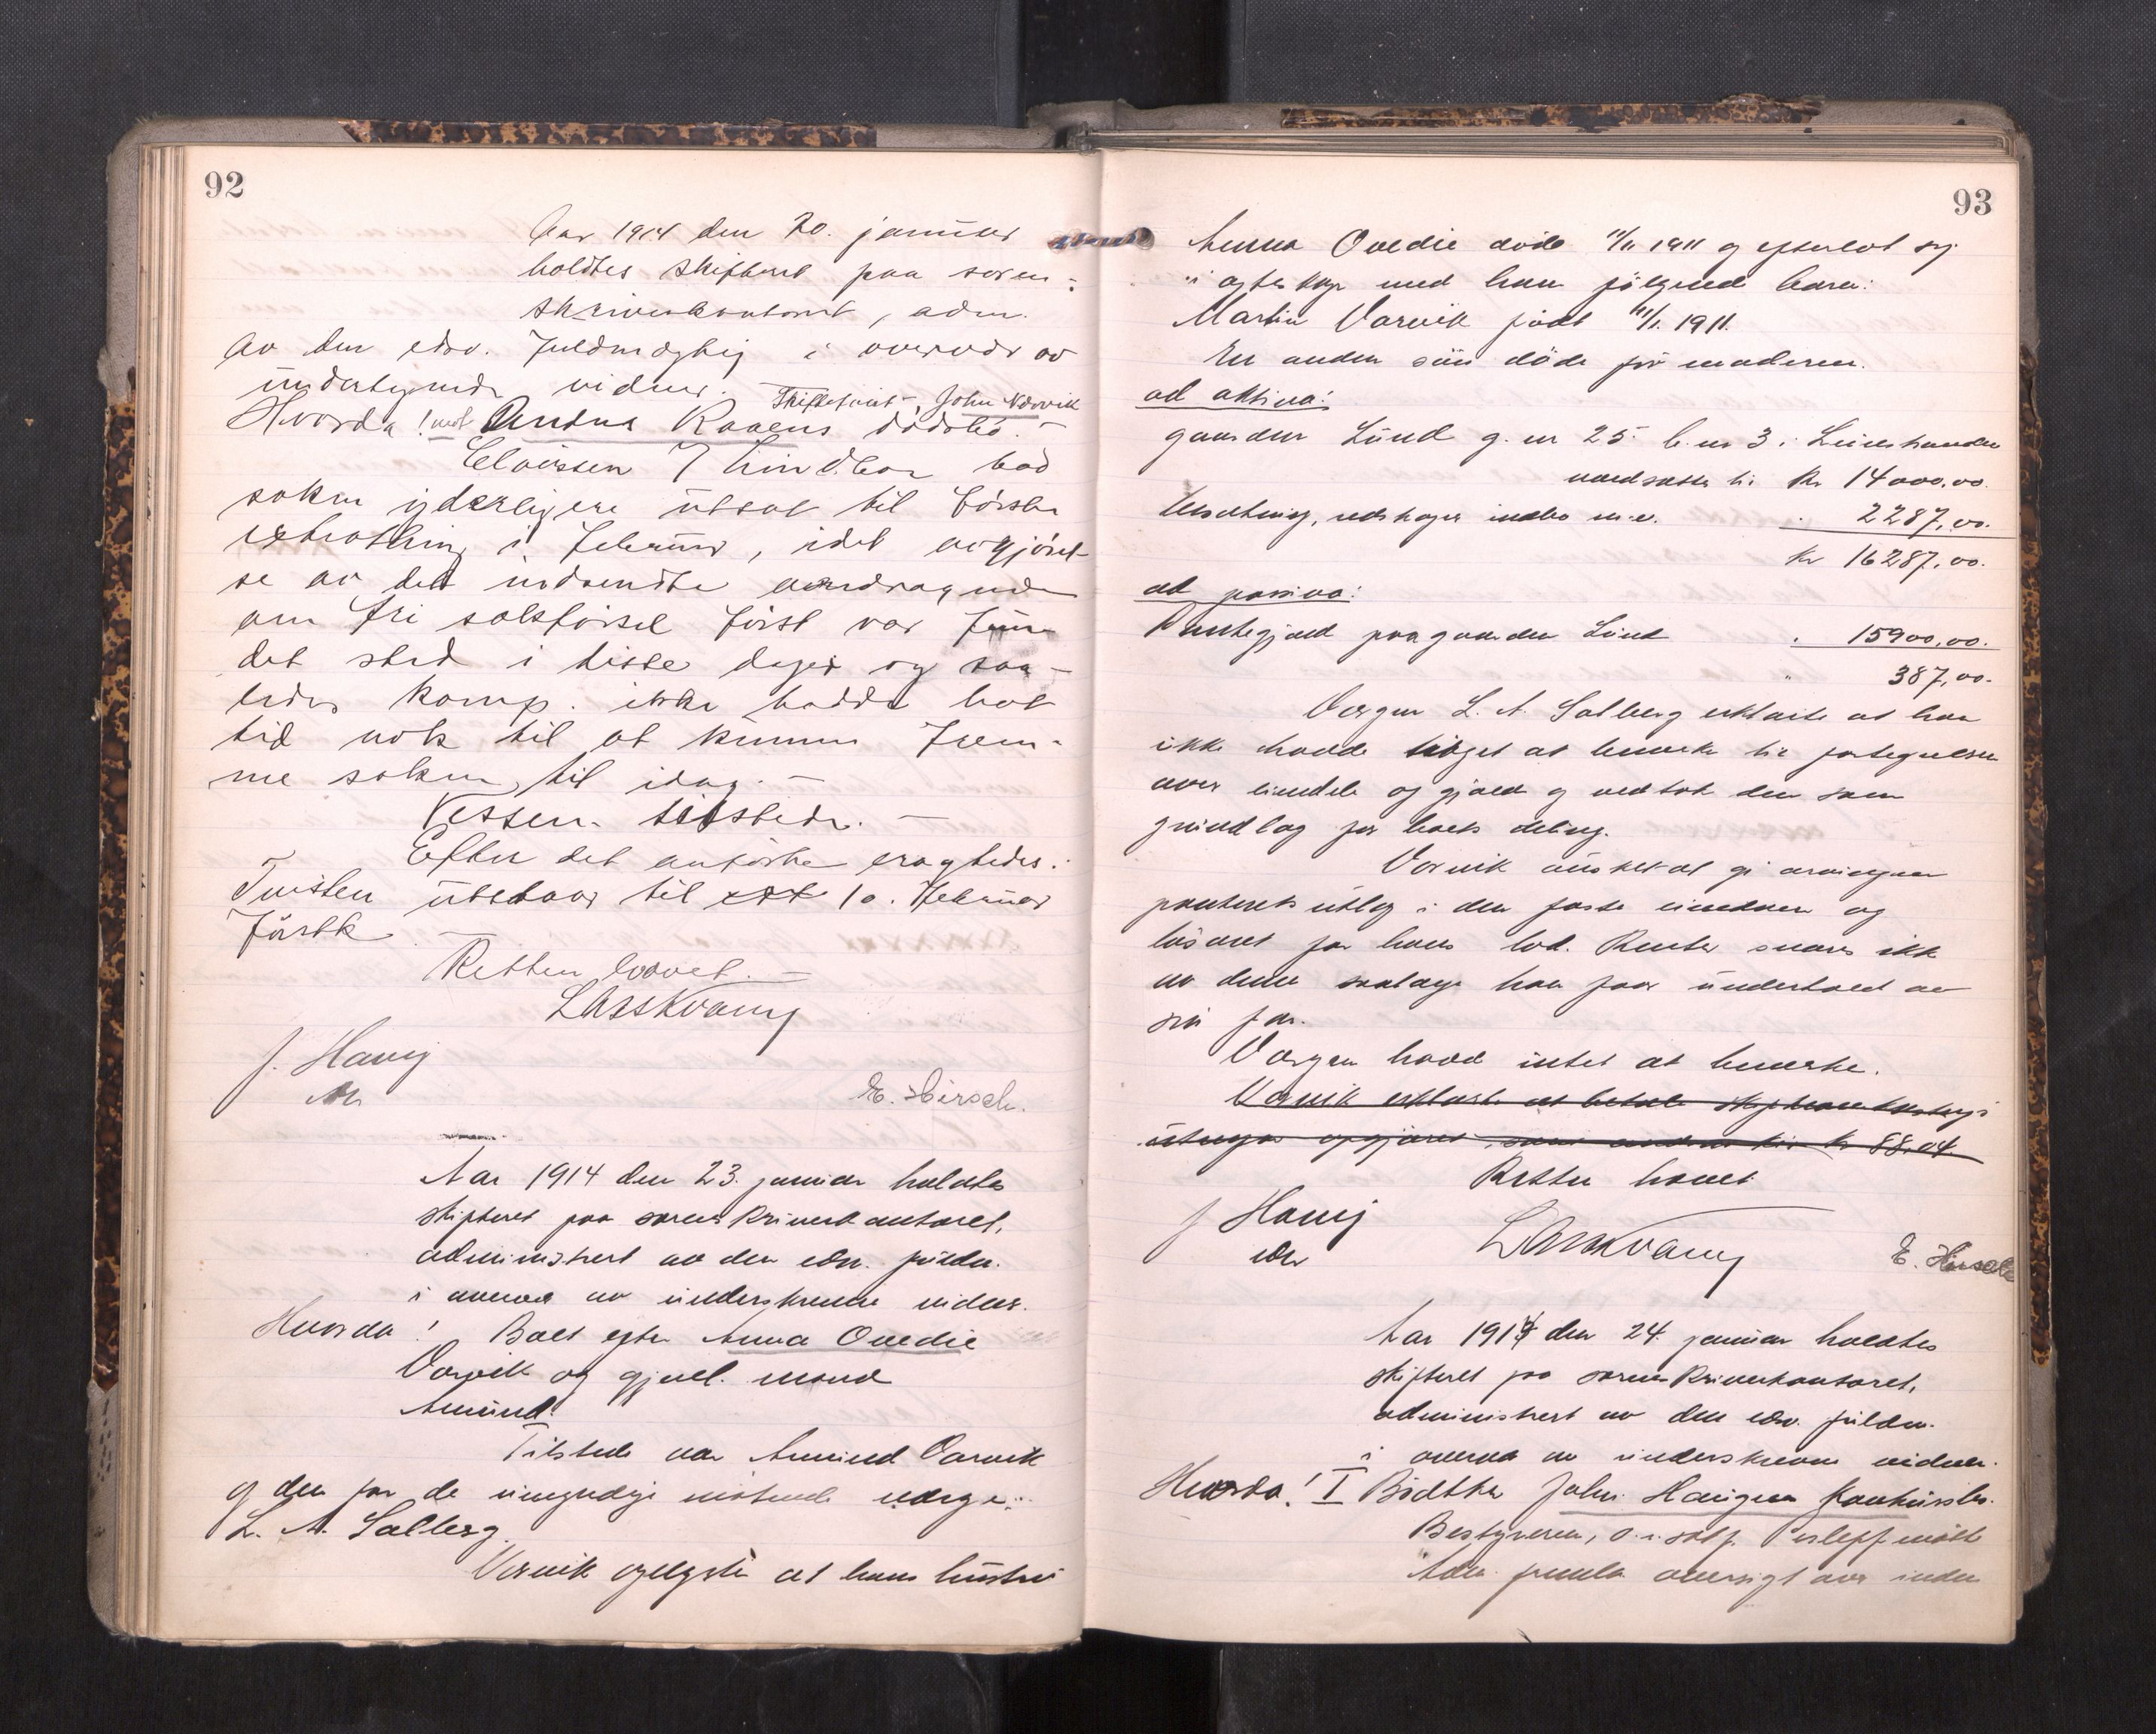 92
Aar 1914 den 20. januar
holdtes skifteret paa soren-
skriverkontoret, adm.
av den edsv. fuldmægtig i overvær av
undertegnede vidner.
Skiftetvist, John Nervik
Hvorda! mot Andrea Roaens dødsbo.
bad
saken yderligere utsat til første
extrathing i februar, idet avgjørel-
se av det indsendte andragende
om fri saksførsel først var fun-
det sted i disse dager og saa-
ledes komp. ikke hadde hat
tid nok til at kunne frem-
me saken til idag.
tilstede.
Efter det anførte eragtedes:
Tvisten utstaar til 10. februar
førstk.
Retten hævet.
LAssKvamj
J. Havig
E. Hirsch.
Aar 1914 den 23. januar holdtes
skifteret paa sorenskriverkontoret,
administrert av den edsv. fuldm.
i overvær av underskrevne vidner.
Hvorda! Boet efter Anna Ovedie
Varvik og gjenl. mand
Amund.
Tilstede var Amund Varvik
og den for de umyndige møtende verge:
L. A. Salberg.
Varvik oplyste at hans hustru
93
Anna Ovedie døde 11/11 1911 og efterlot sig
i egteskap med ham følgende barn:
Martin Varvik født 11/1. 1911.
En anden søn døde før moderen.
ad aktiva:
gaarden Lund g.nr 25 b.nr 3 i
verdsættes til kr 14000.00.
Besætning, redskaper indbo m.v. " 2287,00.
kr 16287,00.
ad passiva:
Pantegjæld paa gaarden Lund " 15900,00.
" 387,00.
Vergen L. A. Salberg erklærte at han
ikke havde noget at bemerke til fortegnelsen
over eiendele og gjæld og vedtok den som
grundlag for boets deling.
Varvik ønsket at gi arvingen
panterets utlæg i den faste eiendom og
løsøret for hans lod. Renter svares ikke
av denne saalænge han faar underhold av
sin far.
Vergen havde intet at bemerke.
Varvik erklærte at betale
opgjøret, kr 88.04.
Retten hævet
J Havig
LAssKvamj
E. Hirsch
Aar 1914 den 24. januar holdtes
skifteret paa sorenskriverkontoret,
administrert av den edsv. fuldm.
i overvær av underskrevne vidner.
Hvorda! I Bødtker John Haugens konkursbo.
Bestyreren, o.r.sakf. møtte
fremla oversigt over